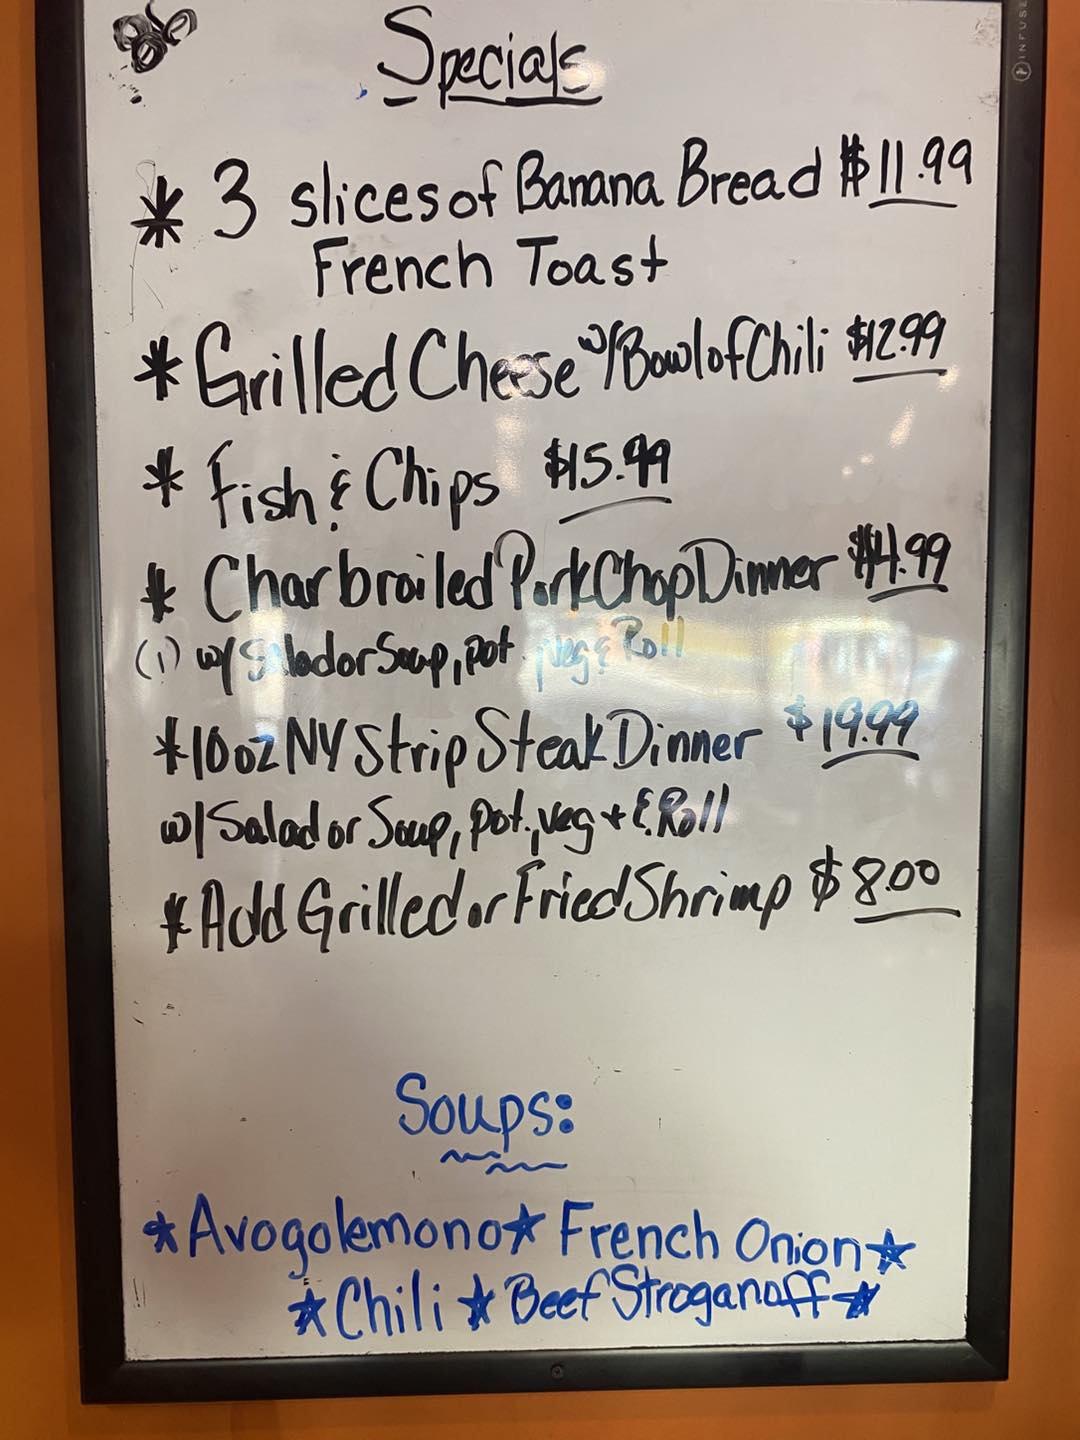 INFUSE
Specials
* 3 slices of Banana Bread $11.99
French Toast
* Grilled Cheese w/Bowl of Chili $12.99
* Fish & Chips $15.99
* Charbroiled Pork Chop Dinner $14.99
(1) w/ Salad or Soup, pot. veg & Roll
* 10oz NY Strip Steak Dinner $19.99
w/ Salad or Soup, pot., veg + & Roll
* Add Grilled or Fried Shrimp $8.00
Soups:
* Avogolemono ★ French Onion ★
★ Chili ★ Beef Stroganoff ★